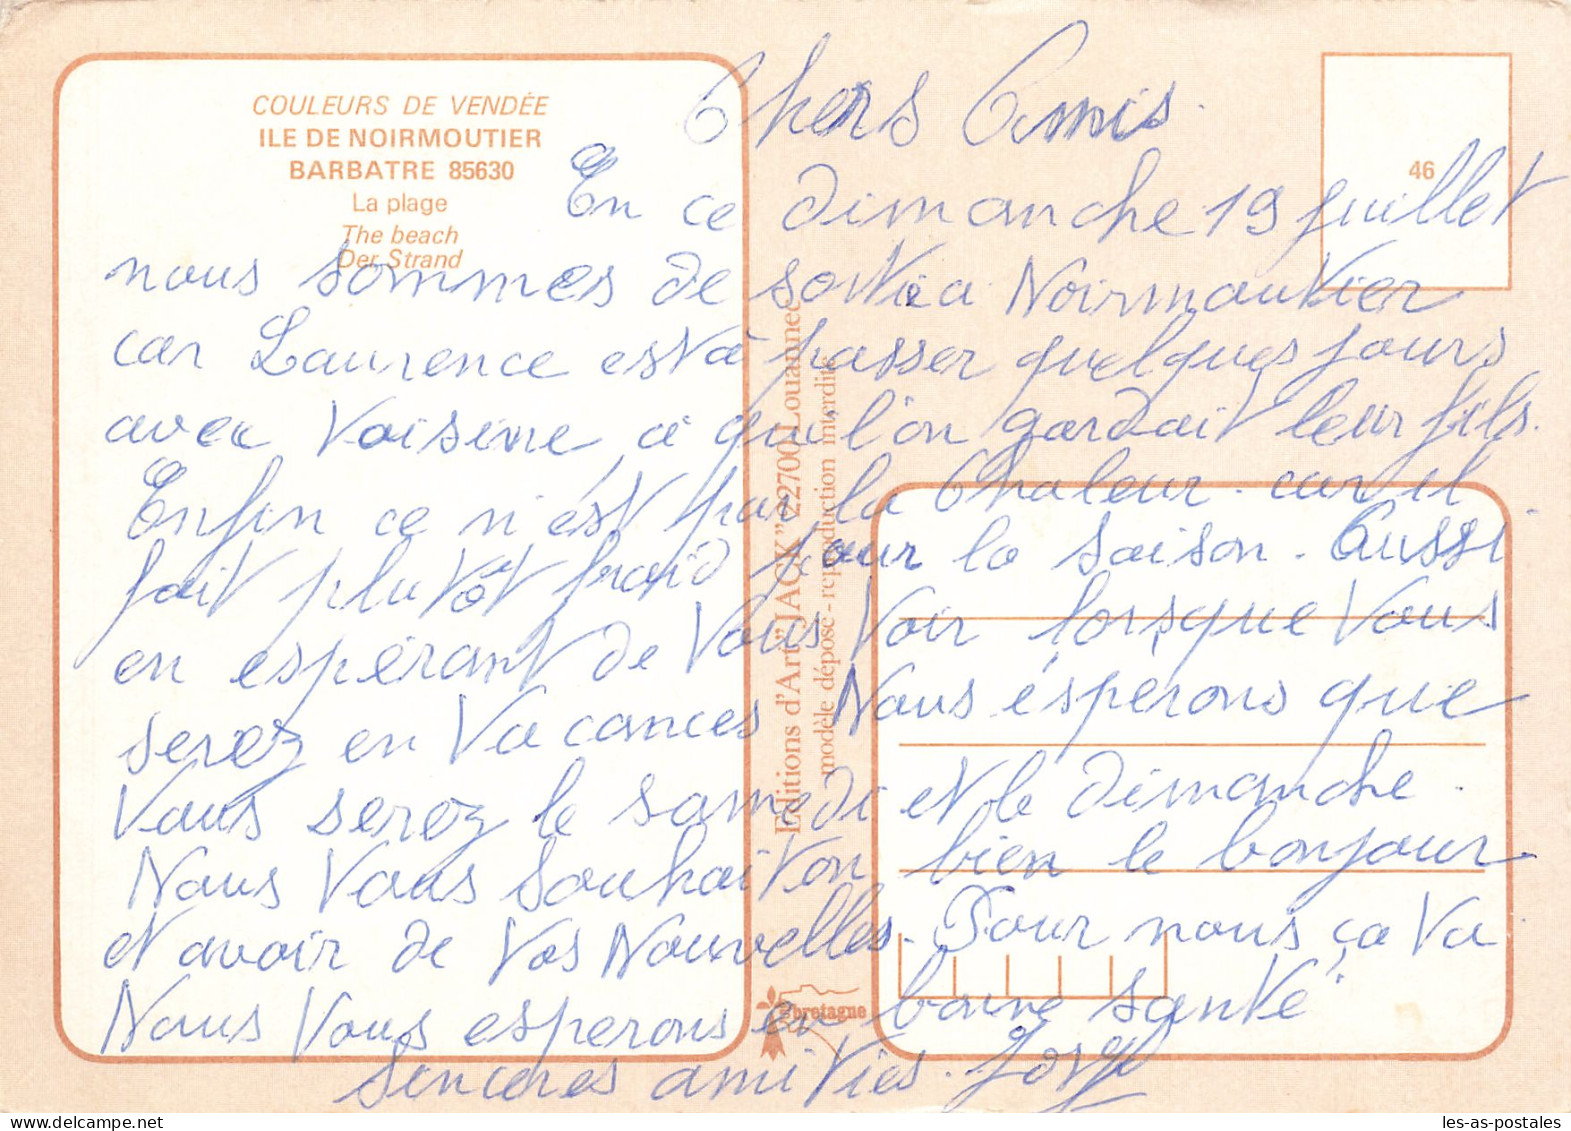 COULEURS DE VENDÉE
ILE DE NOIRMOUTIER
BARBATRE 85630
La plage
The beach
Der Strand
46
Chers Amis.
En ce dimanche 19 juillet
nous sommes de sortie a Noirmoutier
car Laurence est à passer quelques jours
avec Voisine à qui l'on gardait leur fils.
Enfin ce n'ést pas la Chaleur. car il
fait plutôt froid pour la saison. Aussi
en espérant de Vous Voir lorsque Vous
serez en Vacances Nous ésperons que
Vous serez le samedi et le dimanche.
Nous Vous souhaiton bien le bonjour.
et avoir de Vos Nouvelles. Pour nous ça Va
Nous Vous esperons en bonne santé
sincères amitiés.
Editions d'Art "JACK" 22700 Louannec
modèle déposé - reproduction interdite
bretagne
les-as-postales